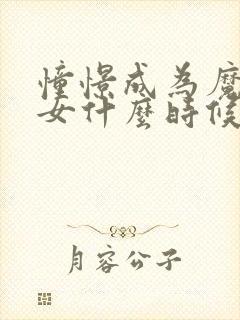 憧憬成為魔
女什麼時候
月容公子